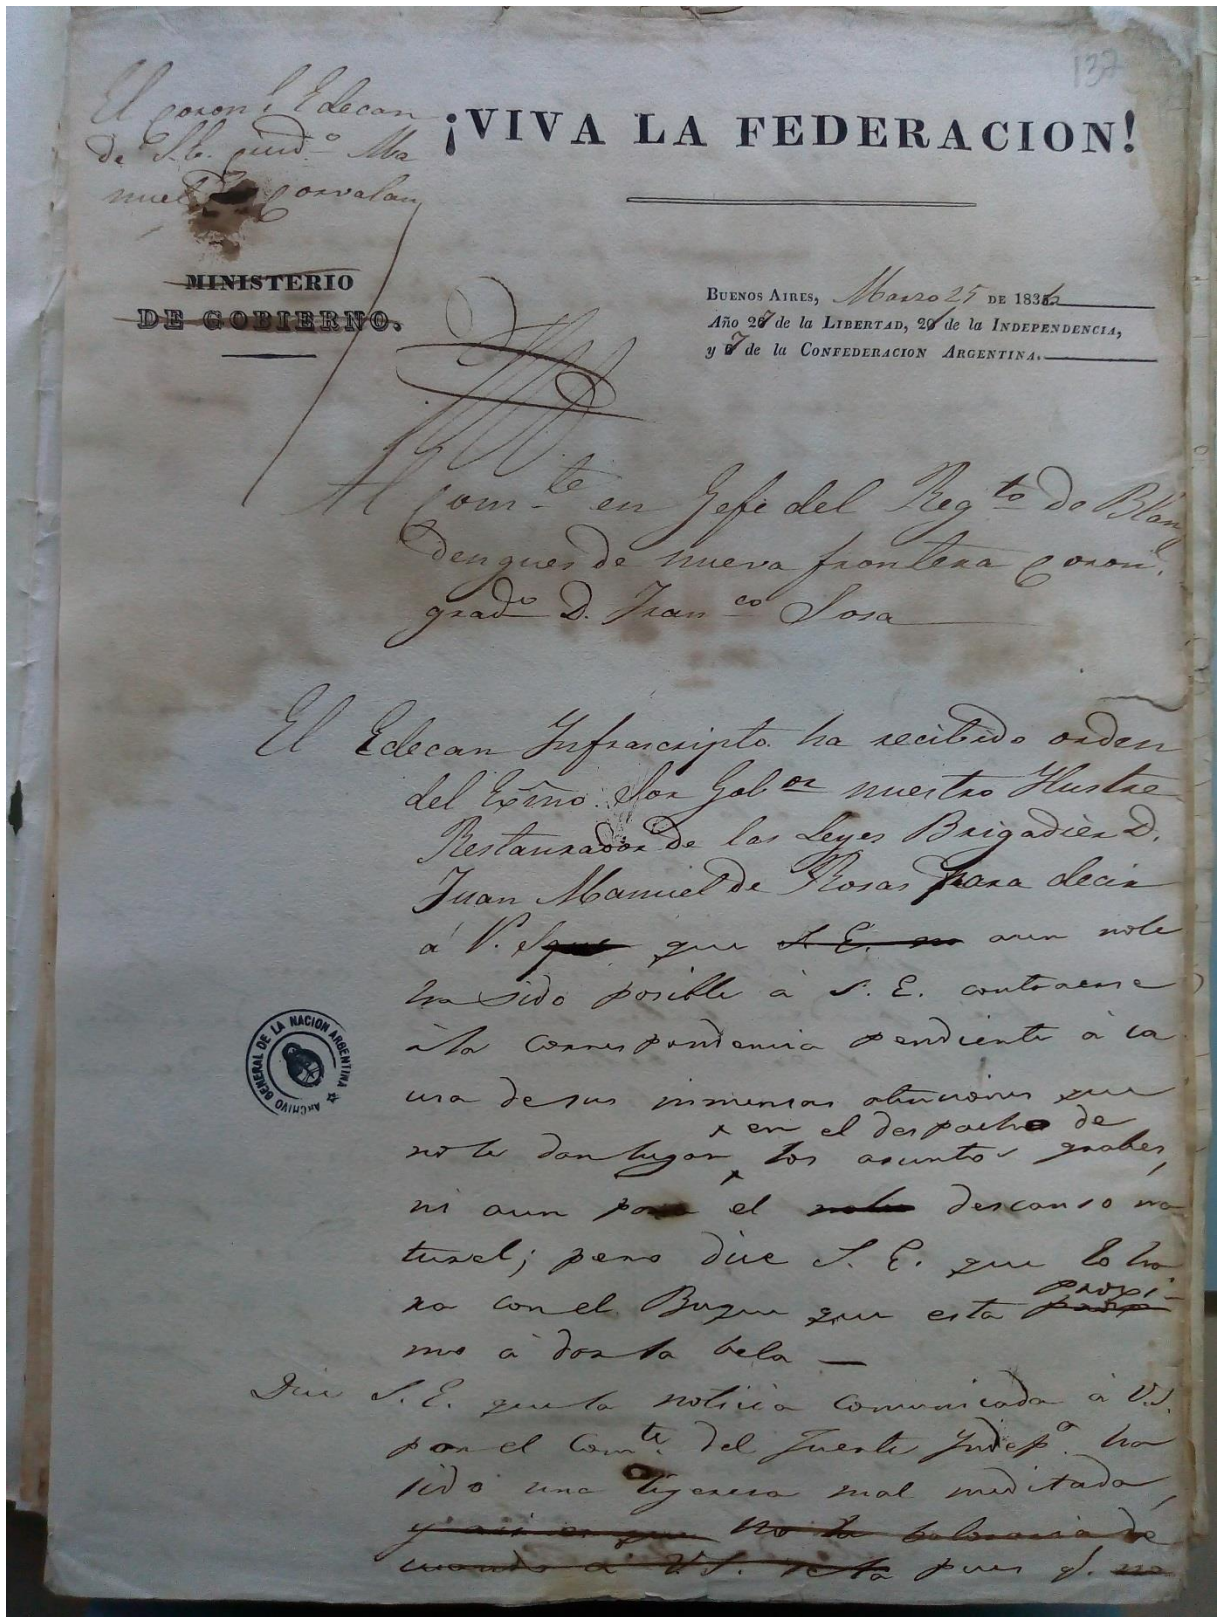 137
El coron.l Edecan
de S.E. ciud.o Ma
nuel Corvalan
¡VIVA LA FEDERACION!
MINISTERIO
DE GOBIERNO.
BUENOS AIRES, Marzo 25 DE 1836
Año 27 de la LIBERTAD, 21 de la INDEPENDENCIA,
y 7 de la CONFEDERACION ARGENTINA.
Al Com.te en Gefe del Reg.to de Blan
dengues de nueva frontera coron.l
grad.o D. Fran.co Sosa
El Edecan Infrascripto ha recibido orden
del Exmo. Sor Gob.or nuestro Ilustre
Restaurador de las Leyes Brigadier D.
Juan Manuel de Rosas para decir
á V. S que S. E. no aun no le
ha sido posible à S. E. contraerse
à la correspondencia pendiente à ca
usa de sus inmensas atenciones que
en el despacho de
no le dan lugar los asuntos grabes,
ni aun para el descanso na
tural; pero dice S. E. que lo ha
proxi-
ra con el Buque que esta prop
mo à dar la bela —
Dice S. E. que la noticia comunicada à V.S.
por el Com.te del Fuerte Yndep.a ha
sido una ligeresa mal meditada,
y asi es que no la
cuando à V.S. pues q.e no
ARCHIVO GENERAL DE LA NACION ARGENTINA